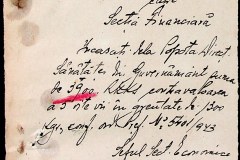 către
Secția Financiară
Încasat dela Popota Direct.
Sănătatei din Guvernământ suma
de 3900 contravaloarea
a 3 oite vii în greutate de 1300
Kgr., conf. ord. Pref. No. 5401/943
Șeful Sect. Economice